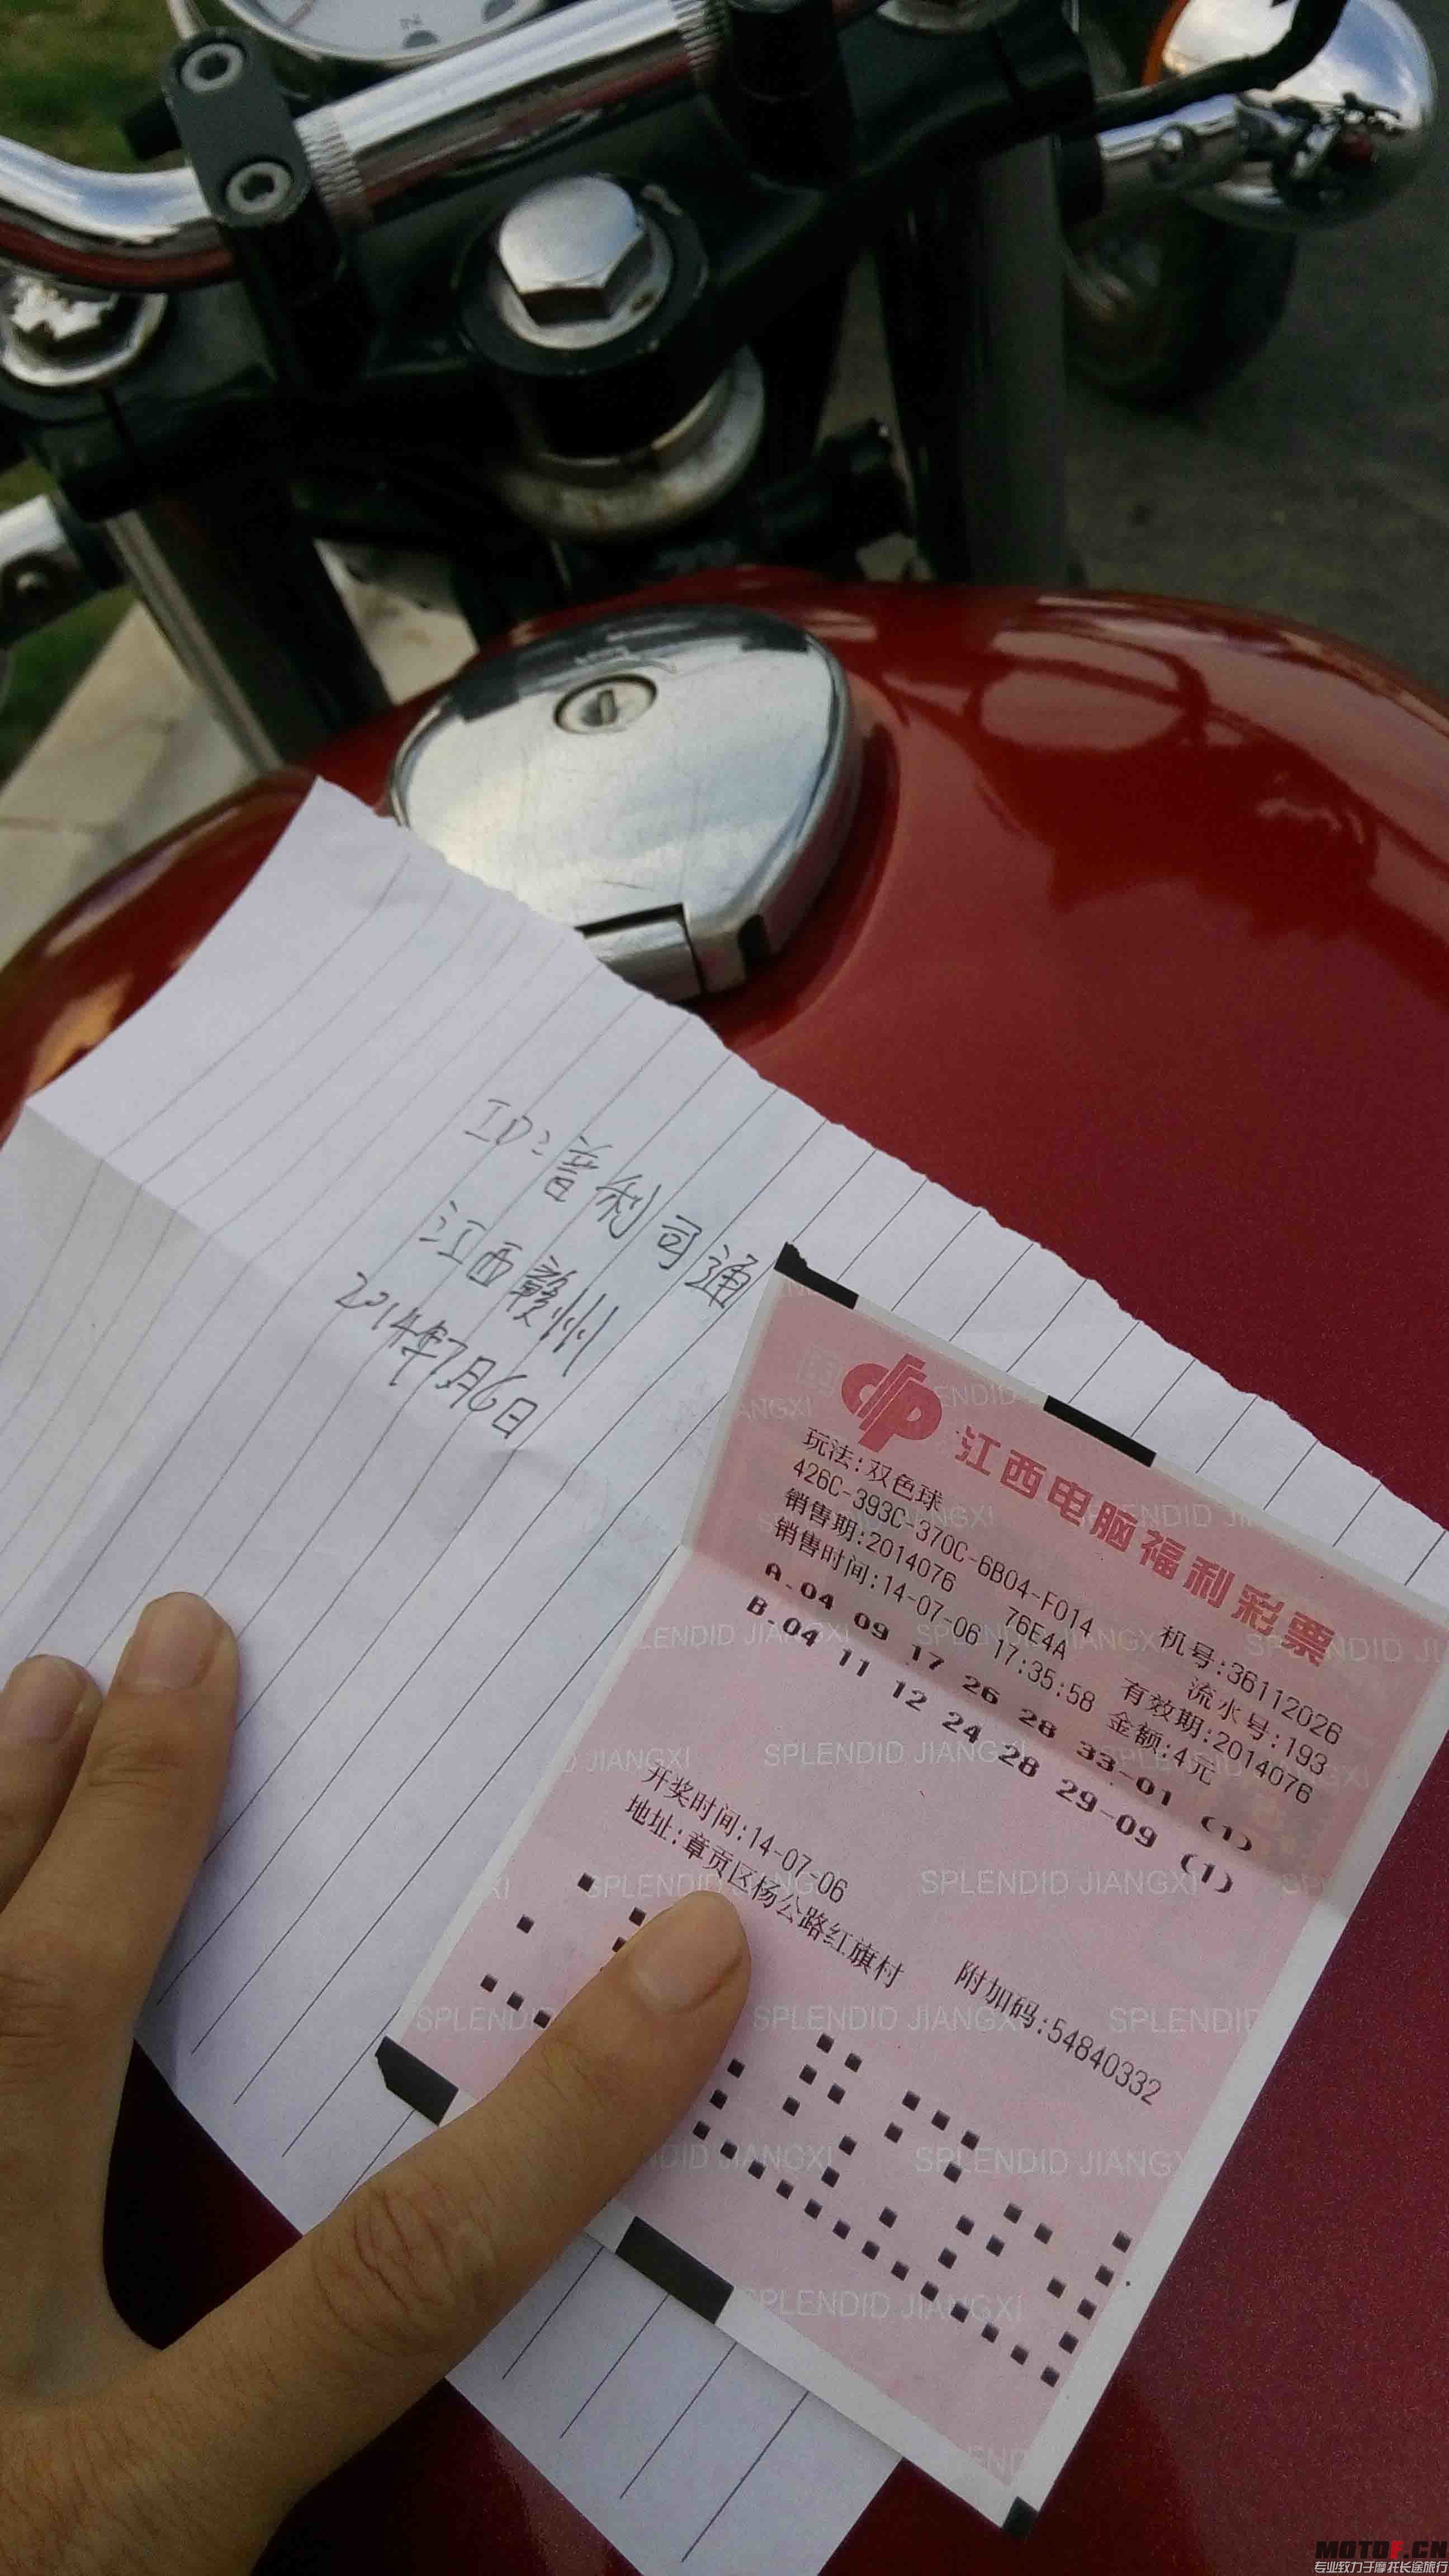 ID:普利司通
江西赣州
2014年7月6日
江西电脑福利彩票
玩法:双色球
机号:36112026
426C-393C-370C-6B04-F014
流水号:193
销售期:2014076
76E4A
有效期:2014076
销售时间:14-07-06 17:35:58
金额:4元
A.04 09 17 26 28 33-01 (1)
B.04 11 12 24 28 29-09 (1)
开奖时间:14-07-06
地址:章贡区杨公路红旗村
附加码:54840332
SPLENDID JIANGXI
SPLENDID JIANGXI
SPLENDID JIANGXI
SPLENDID JIANGXI
SPLENDID JIANGXI
MOTOF.CN
专业致力于摩托长途旅行